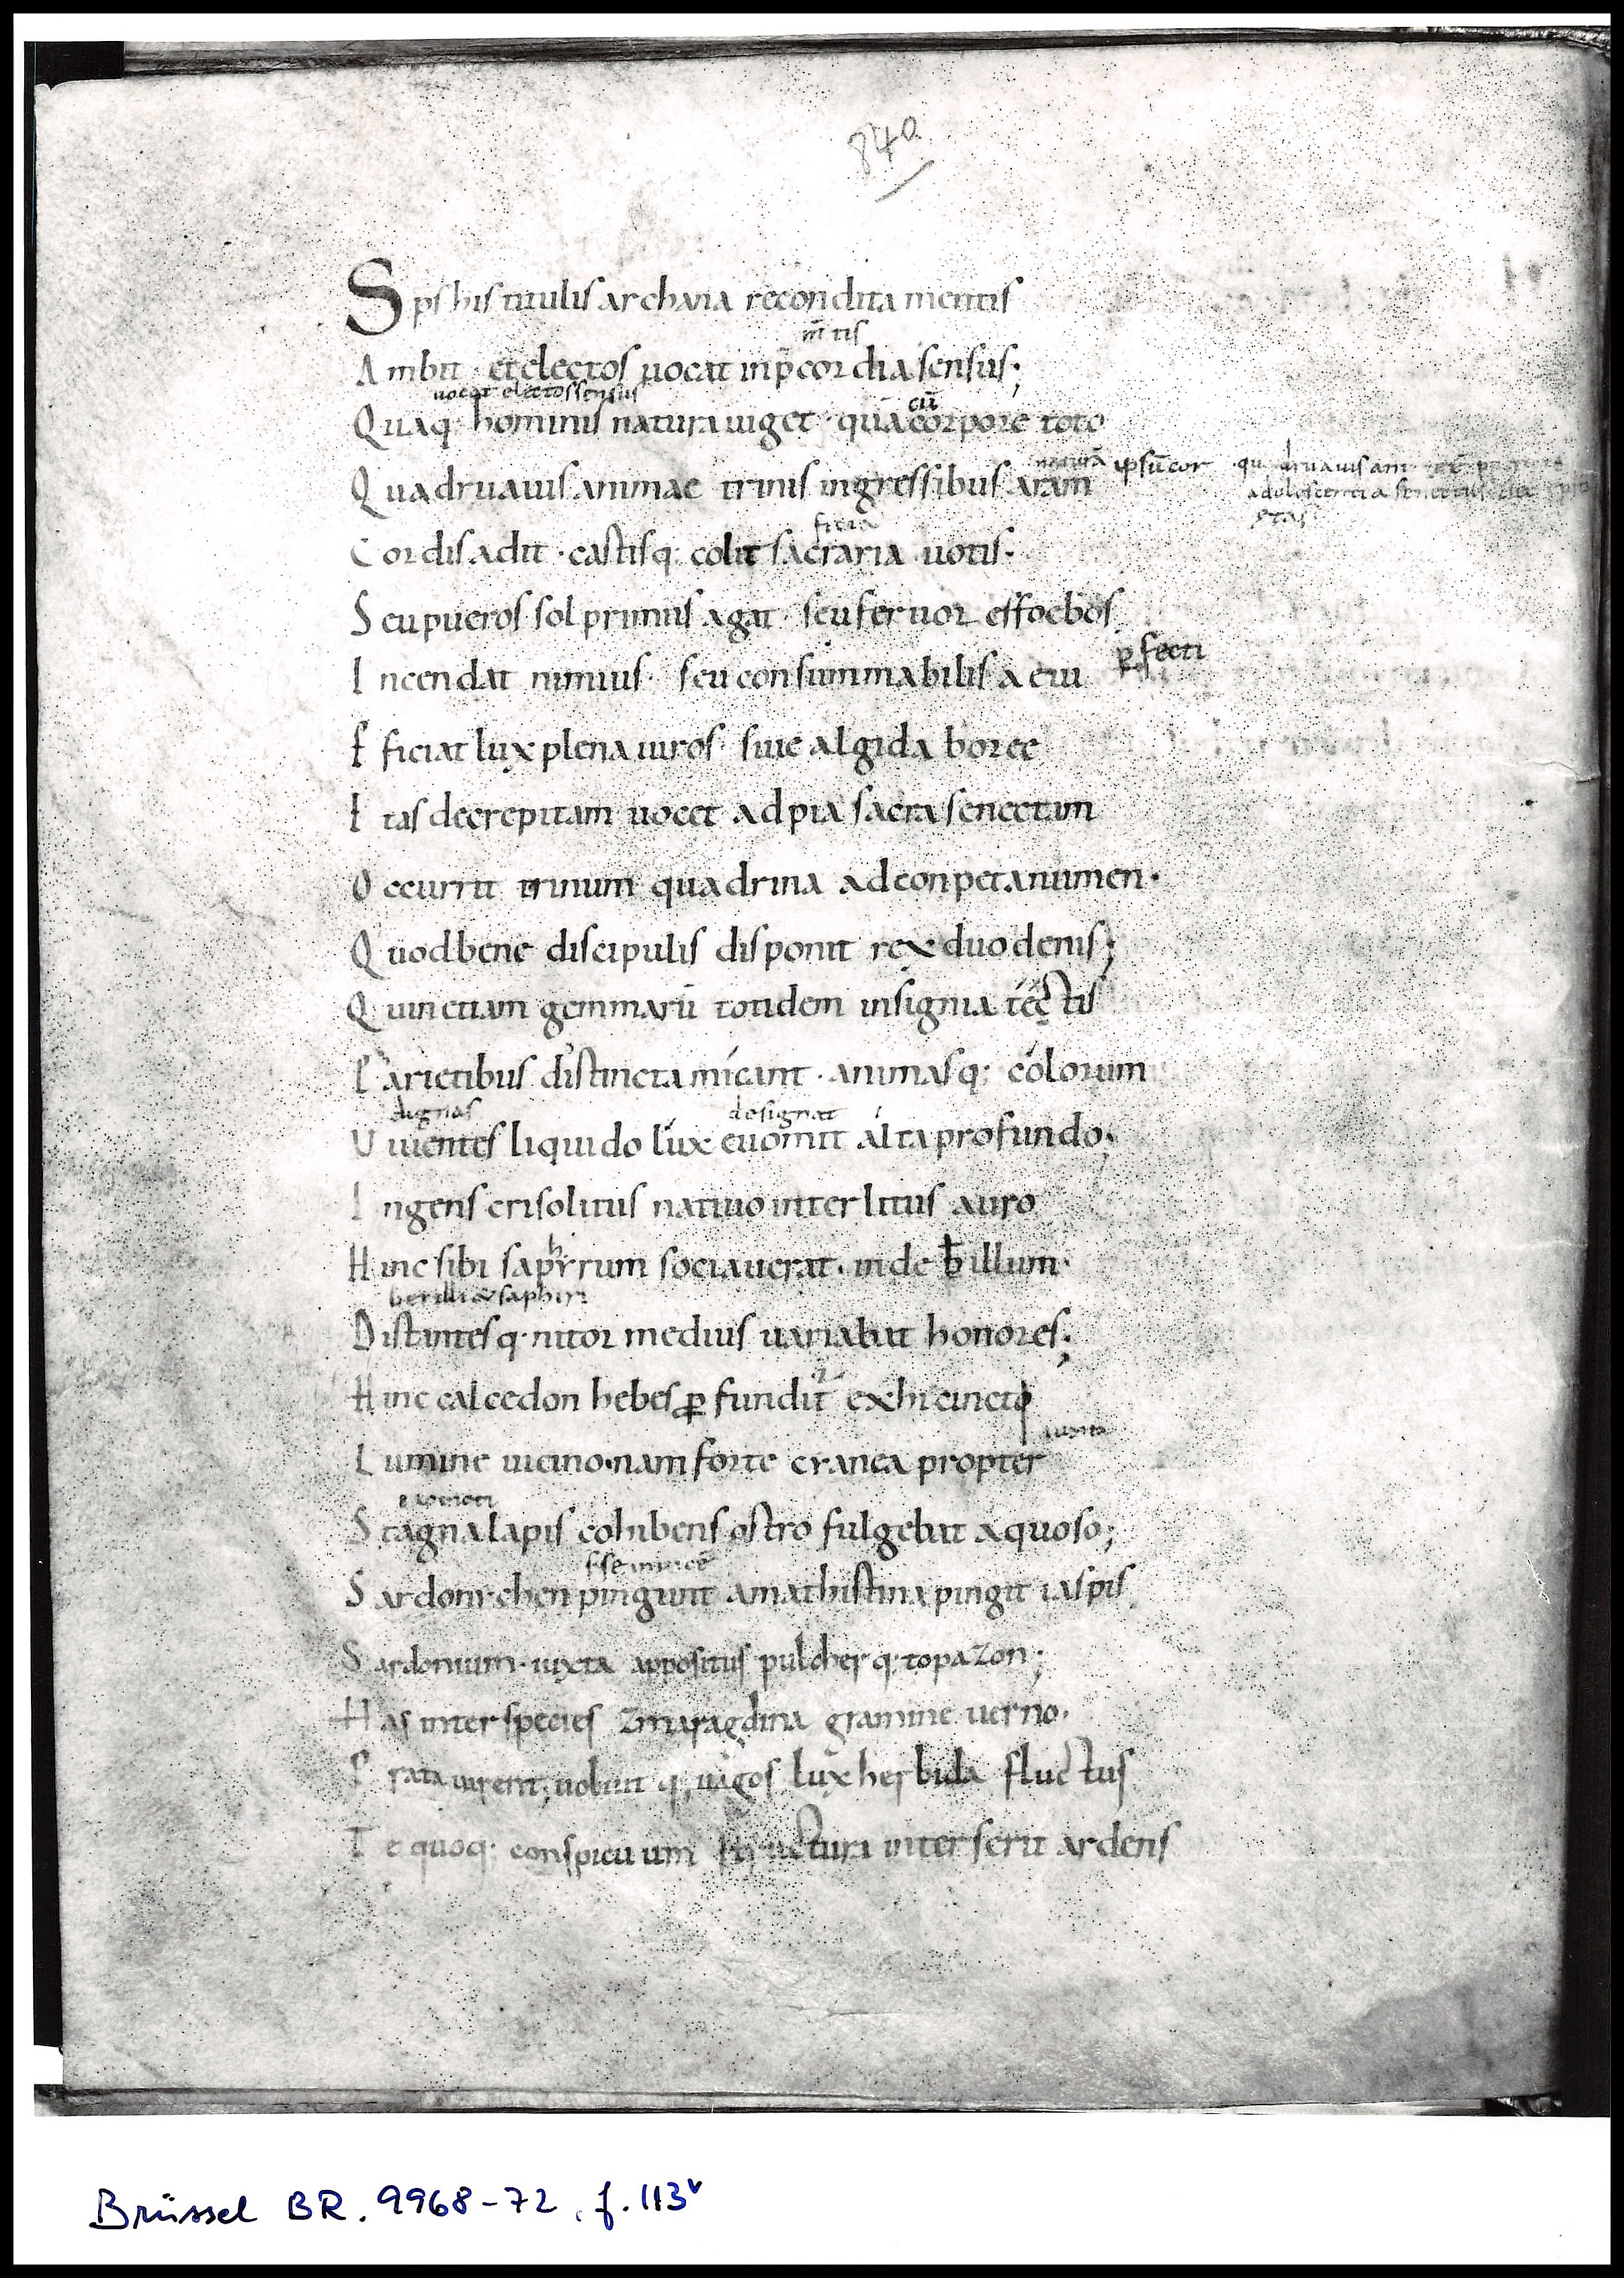 840
Sps his titulis archana recondita mentis
m̄tis
Ambit · et electos uocat inp̄cordia sensus;
uocat electos sensus
cū
Quaq: hominis natura uiget · quā corpore toto
naturā ipsū cor
Quadruauis animae trinis ingressibus aram
adulescentia senectus
ętas
ficia
Cordis adit · castisq: colit sacraria uotis·
Seu pueros sol primus agat · seu feruor effoebos
Incendat nimius · seu consummabilis aeui
ꝑfecti
Eficiat lux plena uiros · siue algida boree
Etas decrepitam uocet ad pia sacra senectam
Occurrit trinum quadrina ad conpeta numen·
Quod bene discipulis disponit rex duodenis;
Quin etiam gemmarū totidem insignia tęctis
Parietibus distincta micant · animasq: colorum
dignas designat
Viuentes liquido lux euomit alta profundo·
Ingens crisolitus natiuo interlitus auro
Hinc sibi sapyrum h sociauerat · inde b̄illum·
berilli & saphiri
Distantesq· nitor medius uariabat honores;
Hinc calcedon hebes ꝑfundit ex hicincto
iuxta
Lumine uicino · nam forte cranea propter
Stagna lapis cohibens ostro fulgebat aquoso;
Sardonichen pingunt amathistina pingit iaspis
Sardonium · iuxta appositus pulcherq· topazon;
Has inter species zmaragdina gramine uerno·
Prata uirent; uoluit q; uagos lux herbida fluctus
Te quoq: conspicuum structura interserit ardens
Brüssel BR. 9968-72, f. 113v